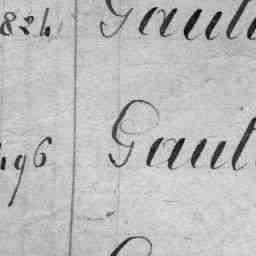 824 Gault
496 Gault